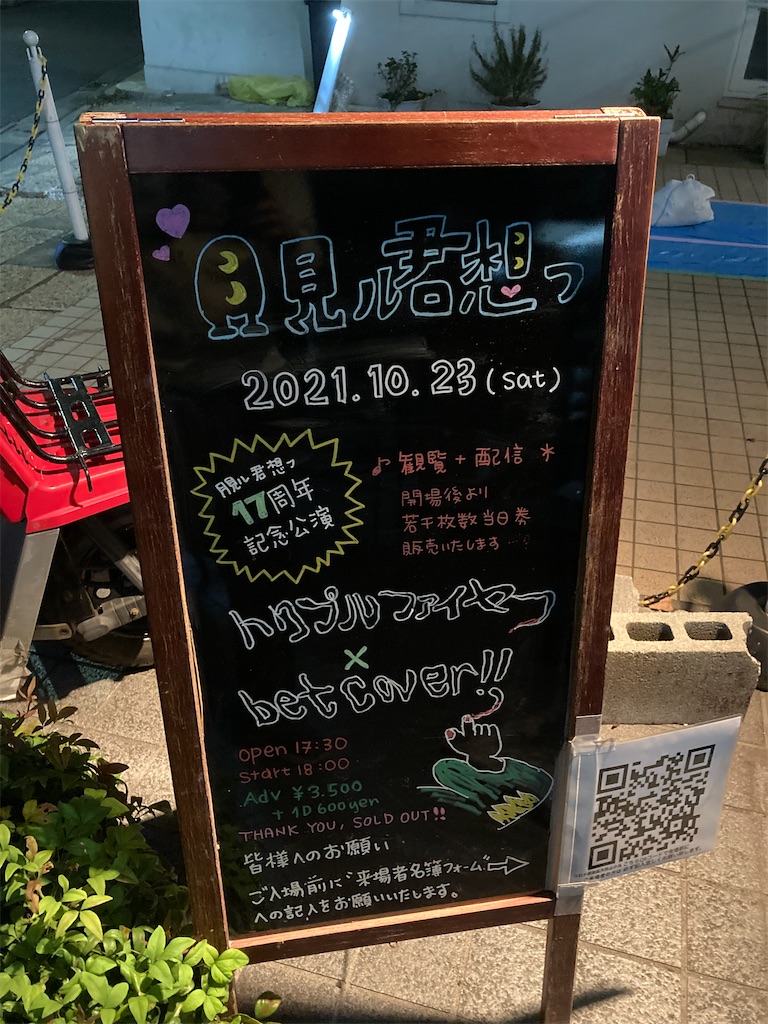 月見ル君想フ
2021.10.23 (sat)
月見ル君想フ
17周年
記念公演
♪観覧 + 配信 *
開場後より
若干枚数当日券
販売いたします…
トリプルファイヤー
×
betcover!!
open 17:30
start 18:00
Adv ¥3.500
+ 1D 600yen
THANK YOU, SOLD OUT!!
皆様へのお願い
ご入場前に"来場者名簿フォーム"
への記入をお願いいたします。